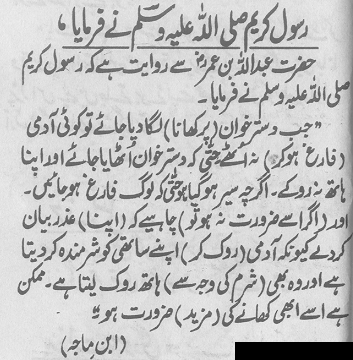 رسول کریم صلی اللہ علیہ وسلم نے فرمایا،
حضرت عبداللہ بن عمرؓ سے روایت ہے کہ رسول کریم
صلی اللہ علیہ وسلم نے فرمایا۔
"جب دسترخوان (پر کھانا) لگا دیا جائے تو کوئی آدمی
(فارغ ہو کر) نہ اُٹھے حتّٰی کہ دسترخوان اُٹھایا جائے اور اپنا
ہاتھ نہ روکے۔ اگرچہ سیر ہو گیا ہو حتّٰی کہ لوگ فارغ ہو جائیں۔
اور (اگر اسے ضرورت نہ ہو تو) چاہیے کہ (اپنا) عذر بیان
کر دے کیونکہ آدمی (روک کر) اپنے ساتھی کو شرمندہ کر دیتا
ہے اور وہ بھی (شرم کی وجہ سے) ہاتھ روک لیتا ہے۔ ممکن
ہے اسے ابھی کھانے کی (مزید) ضرورت ہو"
(ابن ماجہ)